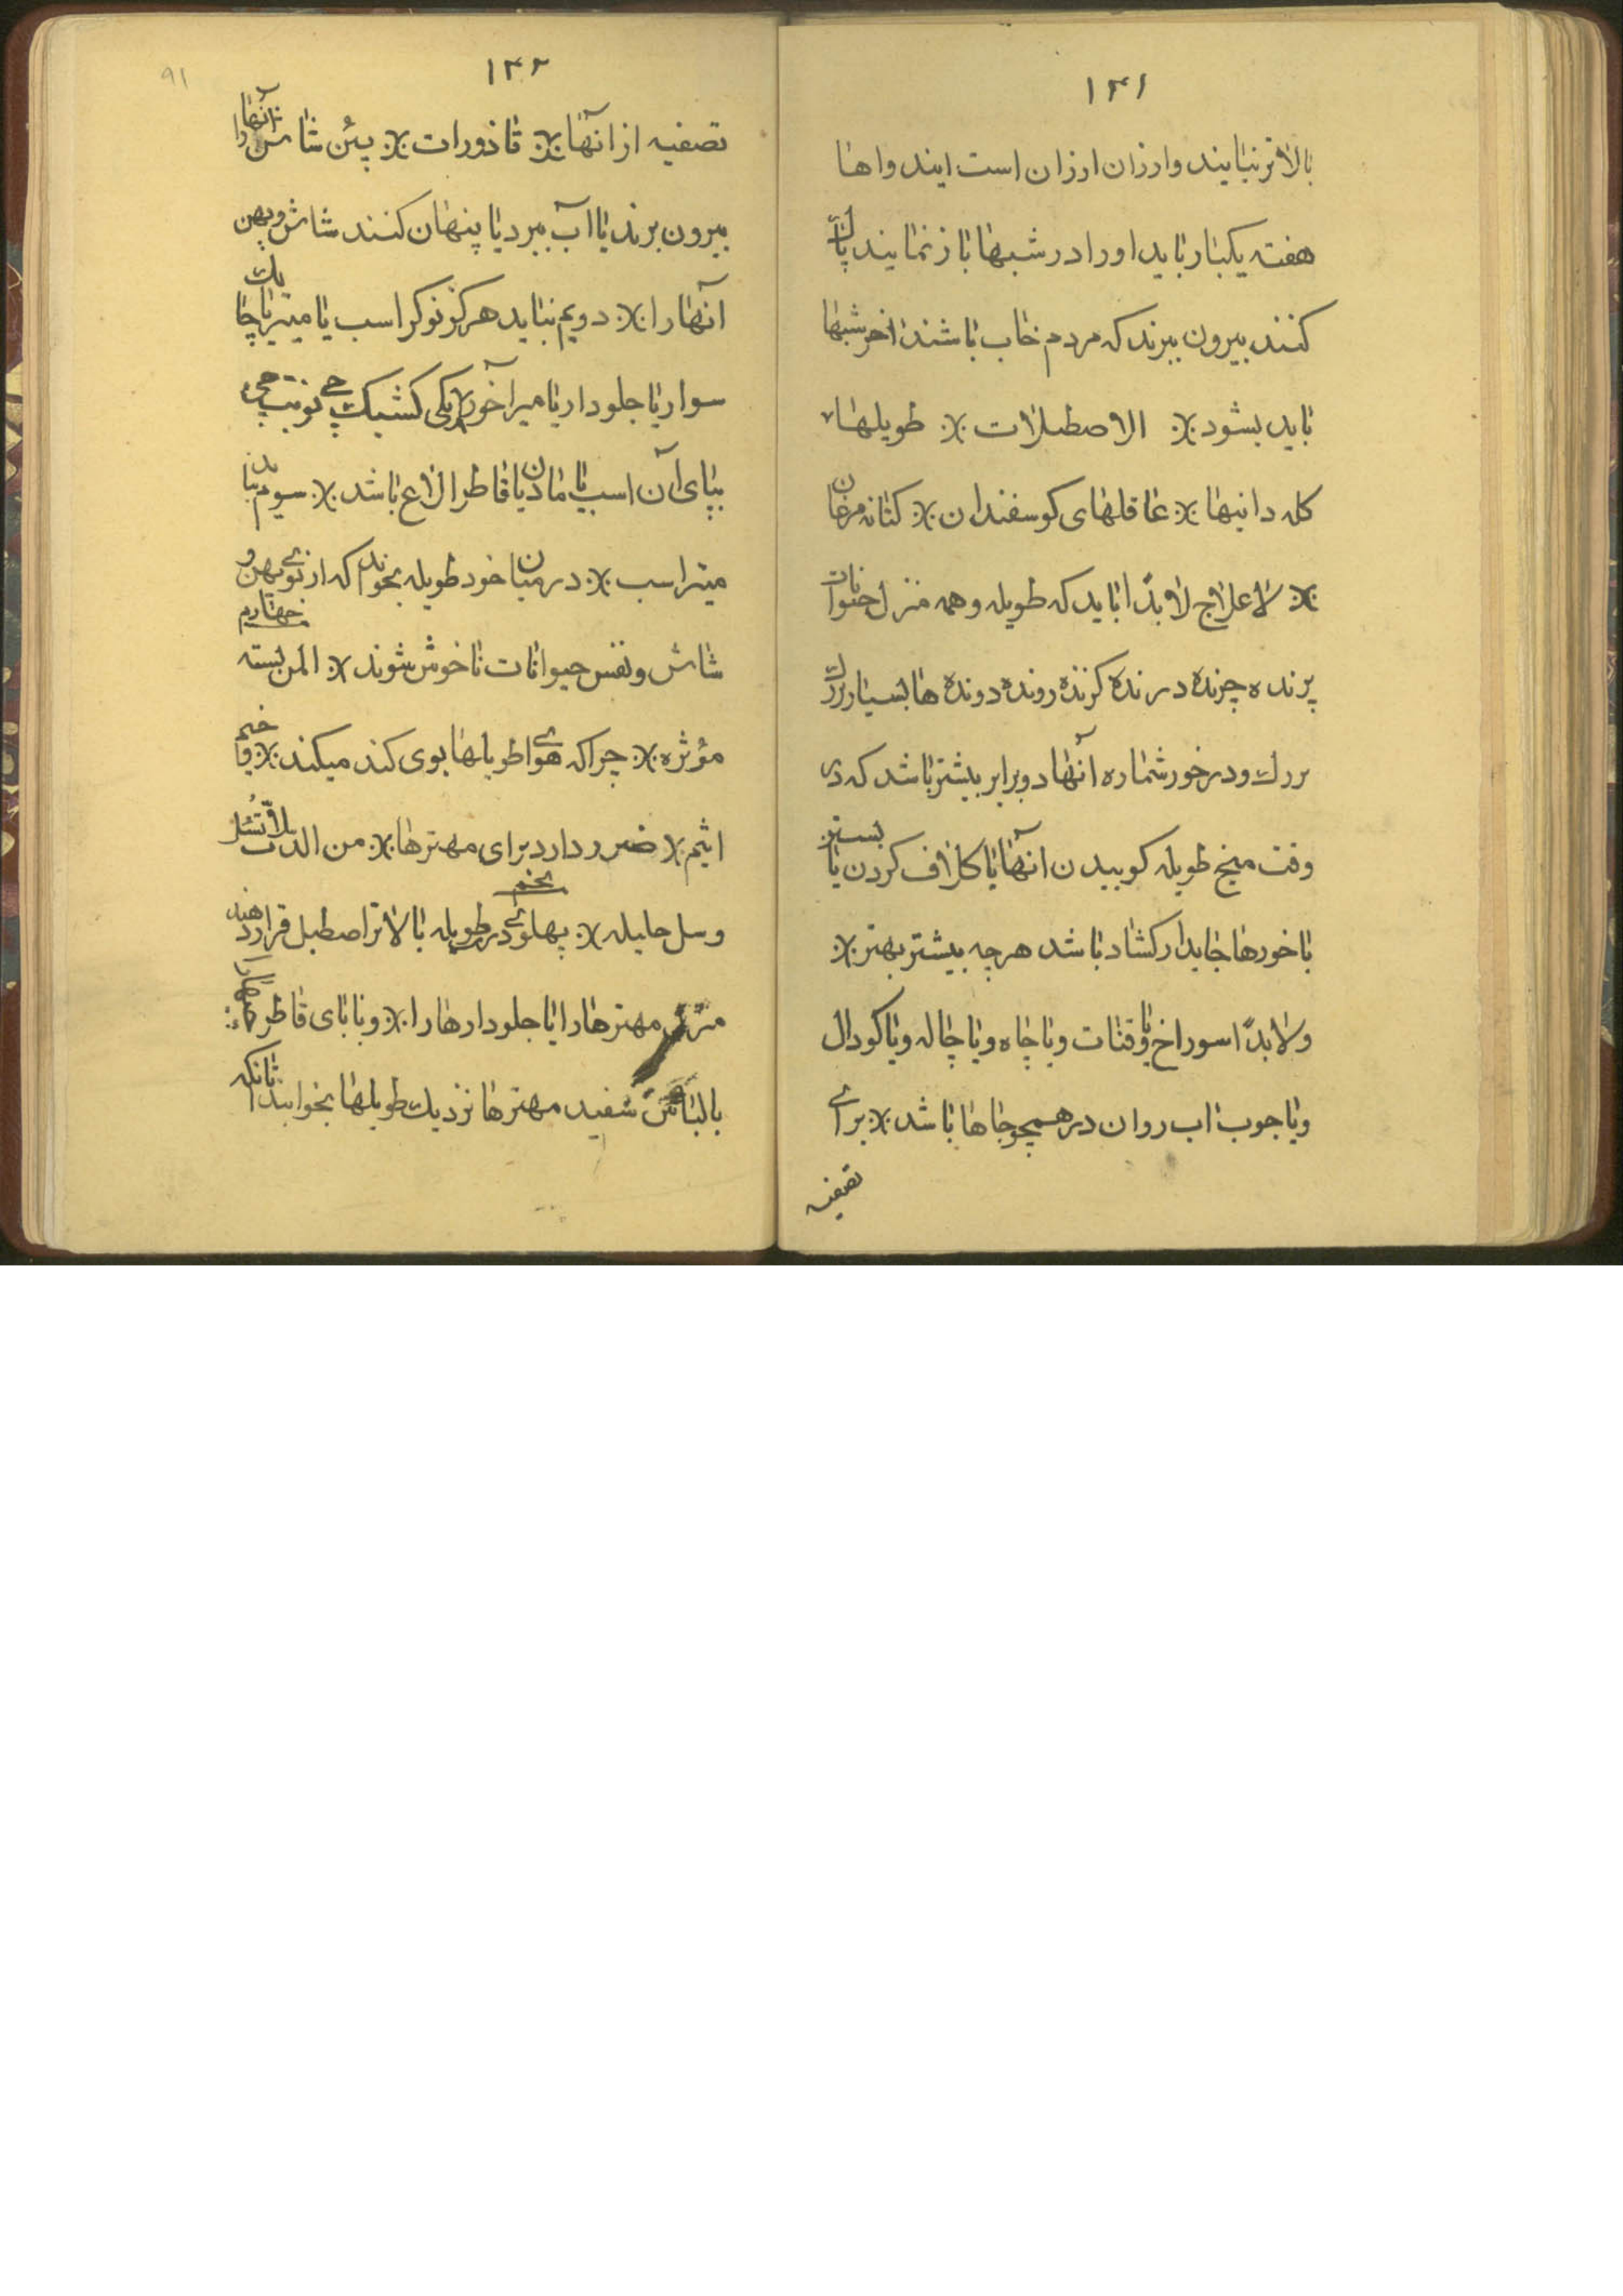 ۱۴۱
بالاتر نیایند و ارزان ارزان است ایند واها
هفته یکبار باید او را در شبها باز نمایند پاک
کنند بیرون ببرند که مردم خاب باشند اخر شبها
باید بشود ※ الاصطبلات ※ طویلهاء
کله دانیها ※ عاقلهای کوسفندان ※ کتانه مرغان
※ لاعلاج لابدّا باید که طویله و همه منزل حیوانات
پرنده چرنده درنده کزنده رونده دونده ها بسیار بزرك
بررك و درخور شماره آنها دو برابر بیشتر باشد که در
وقت میخ طویله کوبیدن آنها یا کلاف کردن یا بستن
باخورها جایدار کشاد باشد هر چه بیشتر بهتر ※
ولابدّا سوراخ یا وقنات ویا چاه ویا چاله ویا کودال
ویا جوب اب روان در همچو جاها باشد ※ برای
تصفیه
۱۴۲
91
تصفیه از آنها ※ قاذورات ※ پئن شاش آنها را
بیرون برند یا آب ببرد یا پنهان کنند شاش و پهن
آنها را ※ دویم نباید هرکز نوکر اسب یا میتر یا چا یك
سوار یا جلودار یا میرآخور ※ یکی کشیک چی نوبت چی
بپای آن اسب یا مادیان یا قاطر الاغ باشد ※ سیوم نباید
میتر اسب ※ در میان خود طویله بخوابد که از بوی پهن و
شاش و نفس حیوانات ناخوش شوند ※ المن بسته چهارم
مؤثره ※ چرا که هوای طویلها بوی کند میکند ※
اثیم ※ ضرر دارد برای مهترها ※ من
وسل جلیله ※ پنجم پهلوی در طویله بالاتر اصطبل قرار دهند
منزل مهترها را یا جلودارها را ※ و یا بابای قاطر
بالباس سفید مهترها نزدیك طویلها بخوابند تا آنکه